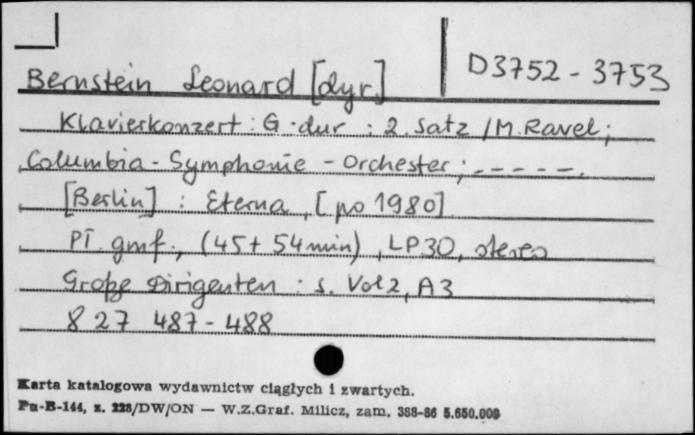 D3752-3753
Bernstein Leonard [dyr.]
Klavierkonzert : G-dur : 2. Satz / M. Ravel ;
Columbia - Symphonie - Orchester ; - - - - -.
[Berlin] : Eterna, [po 1980]
Pł. gmf., (45+54min), LP30, stereo
Große Dirigenten : s. Vol 2, A3
8 27 487-488
Karta katalogowa wydawnictw ciągłych i zwartych.
Pu-B-144, z. 228/DW/ON — W.Z.Graf. Milicz, zam. 388-86 5.650.000